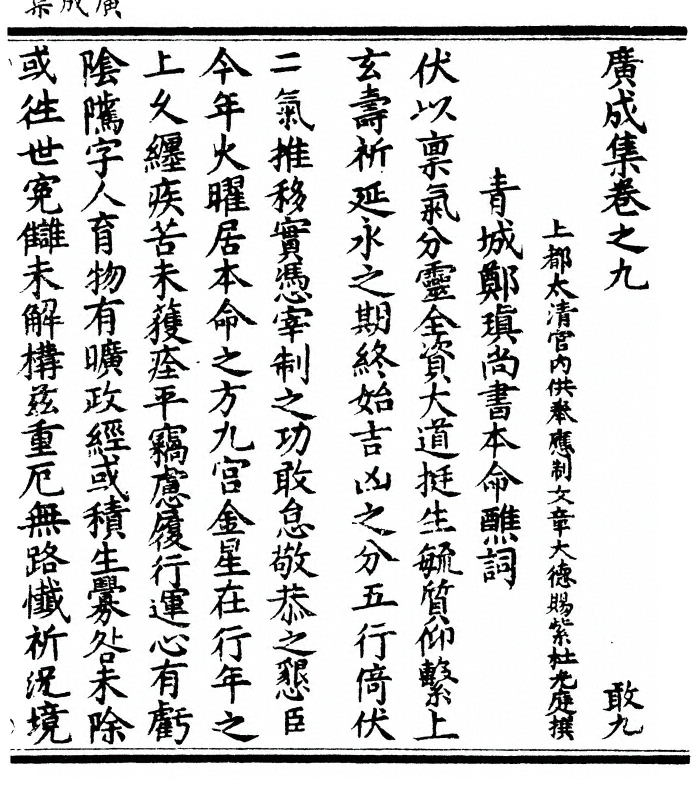 廣成集
廣成集卷之九 敢九
上都太清宮內供奉應制文章大德賜紫杜光庭撰
青城鄭瑱尚書本命醮詞
伏以稟氣分靈全資大道挺生毓質仰繫上
玄壽祈延永之期終始吉凶之分五行倚伏
二氣推移實憑宰制之功敢怠敬恭之懇臣
今年火曜居本命之方九宮金星在行年之
上久纏疾苦未獲痊平竊慮履行運心有虧
陰騭字人育物有曠政經或積生釁咎未除
或往世寃讎未解構兹重厄無路懺祈況境